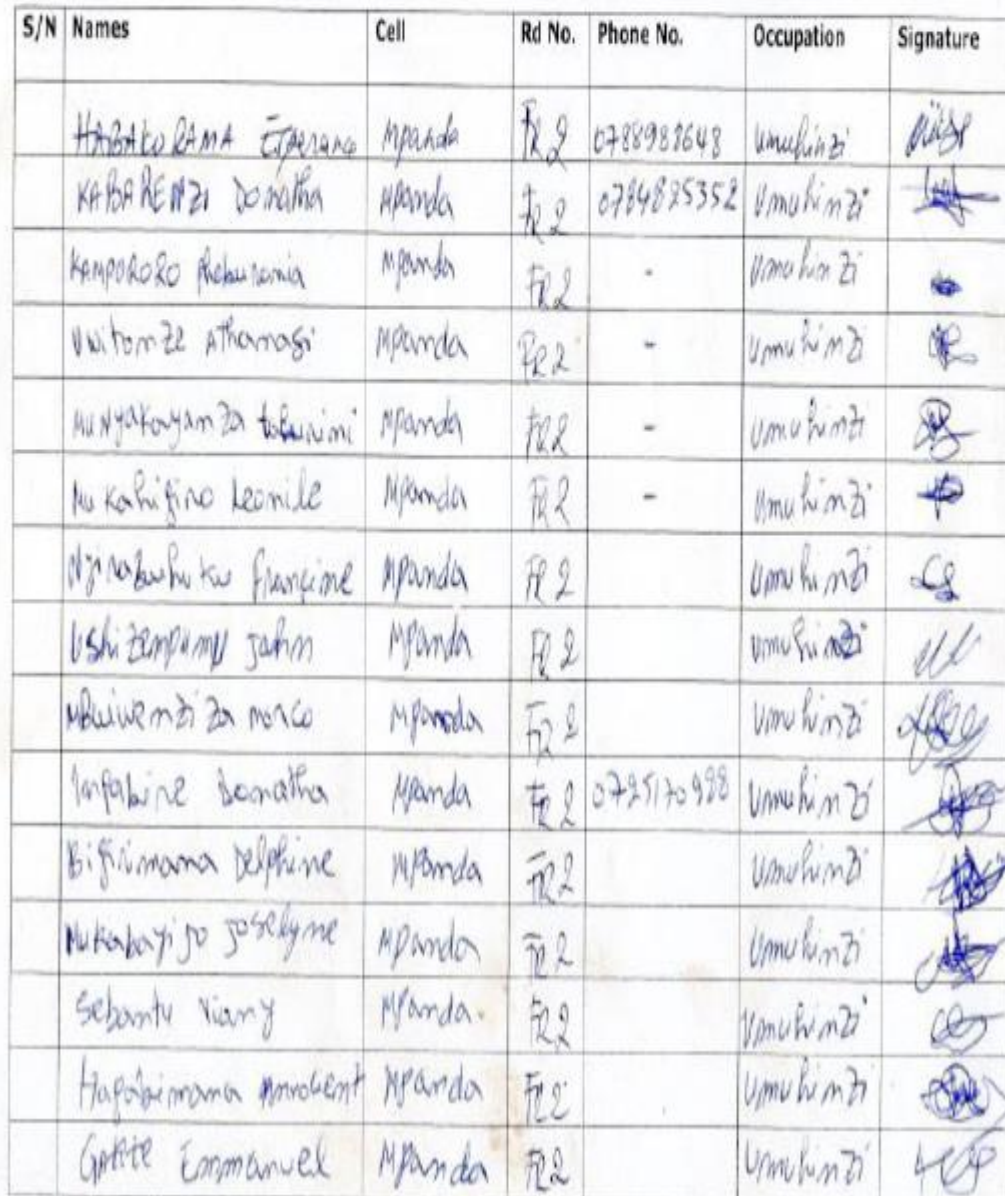 S/N Names Cell Rd No. Phone No. Occupation Signature
HABAKORAMA Esperance Mpanda FR2 0788982648 Umuhinzi
KABARENZI Donatha Mpanda FR2 0784825352 Umuhinzi
KAMPORORO Mpanda FR2 - Umuhinzi
Uwitonze Athanasi Mpanda FR2 - Umuhinzi
Munyakayanza Mpanda FR2 - Umuhinzi
Mukahigiro Leonile Mpanda FR2 - Umuhinzi
Njirabuhuku Francine Mpanda FR2 Umuhinzi
Ushizempumu John Mpanda FR2 Umuhinzi
Mpanda FR2 Umuhinzi
Donatha Mpanda FR2 0725170988 Umuhinzi
Bigirimana Delphine Mpanda FR2 Umuhinzi
Mukabayijo Joselyne Mpanda FR2 Umuhinzi
Sebantu Viany Mpanda FR2 Umuhinzi
Hagabimana Mpanda FR2 Umuhinzi
Emmanuel Mpanda FR2 Umuhinzi